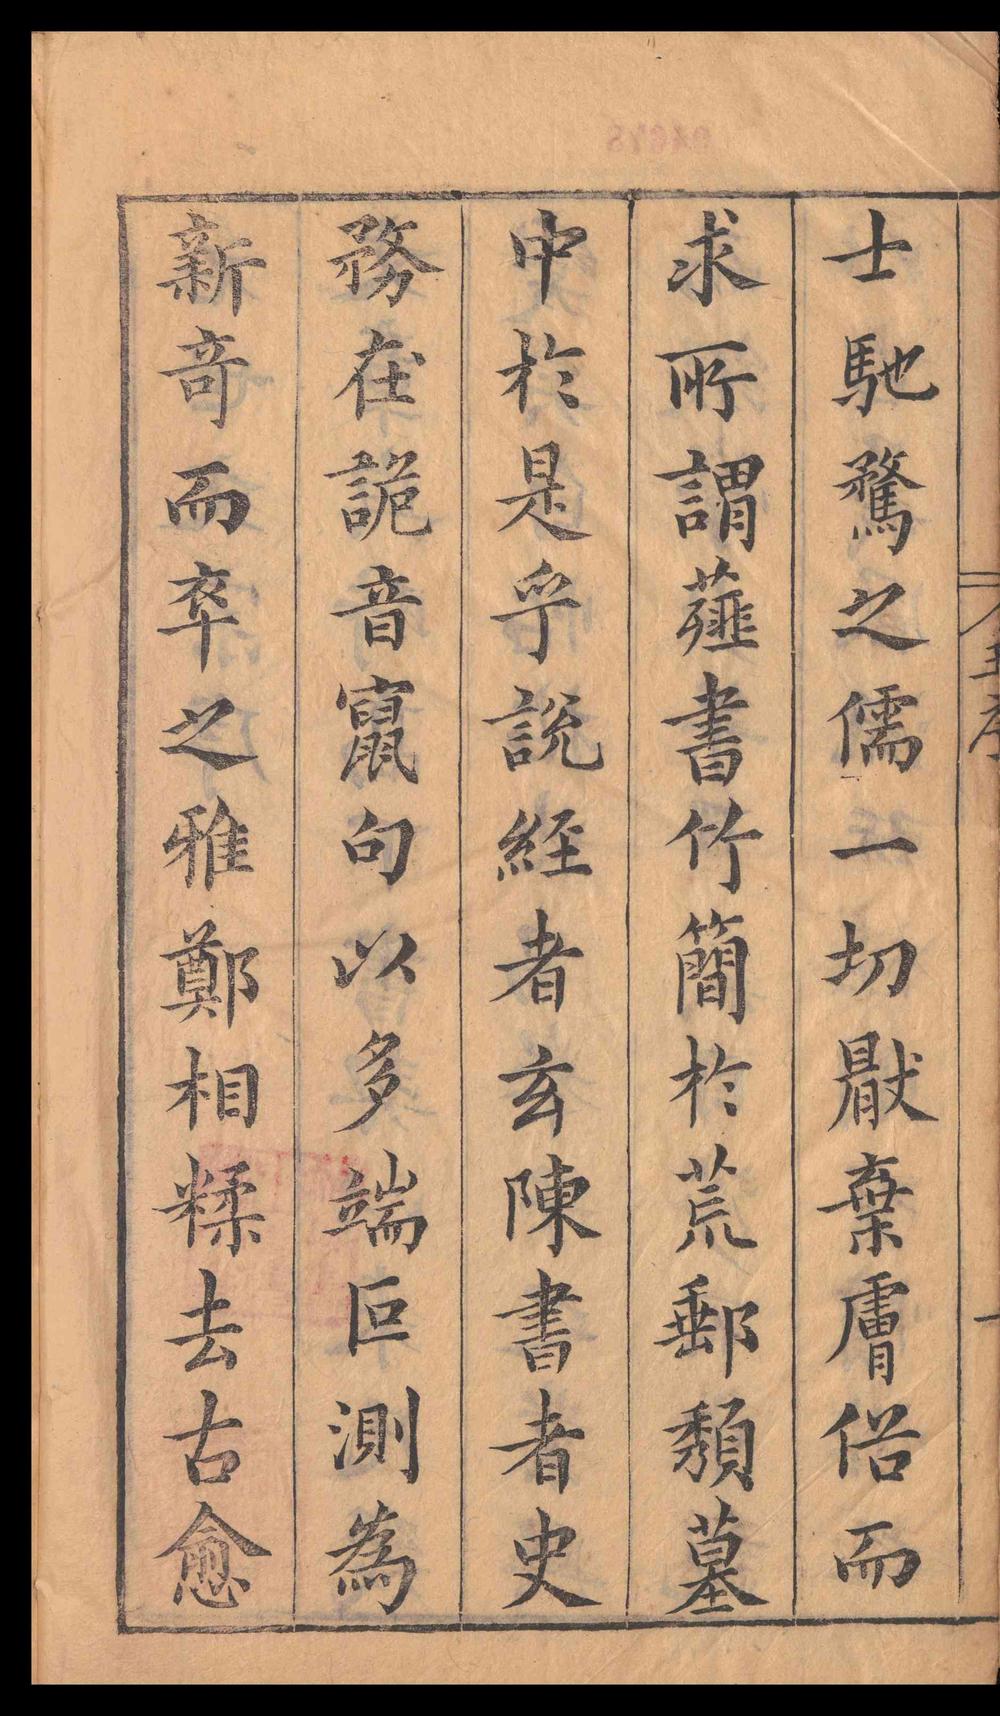 士馳騖之儒一切厭棄膚俗而
求所謂薤書竹簡於荒郵頽墓
中於是乎說經者玄陳書者史
務在詭音竄句以多端叵測為
新竒而卒之雅鄭相糅去古愈